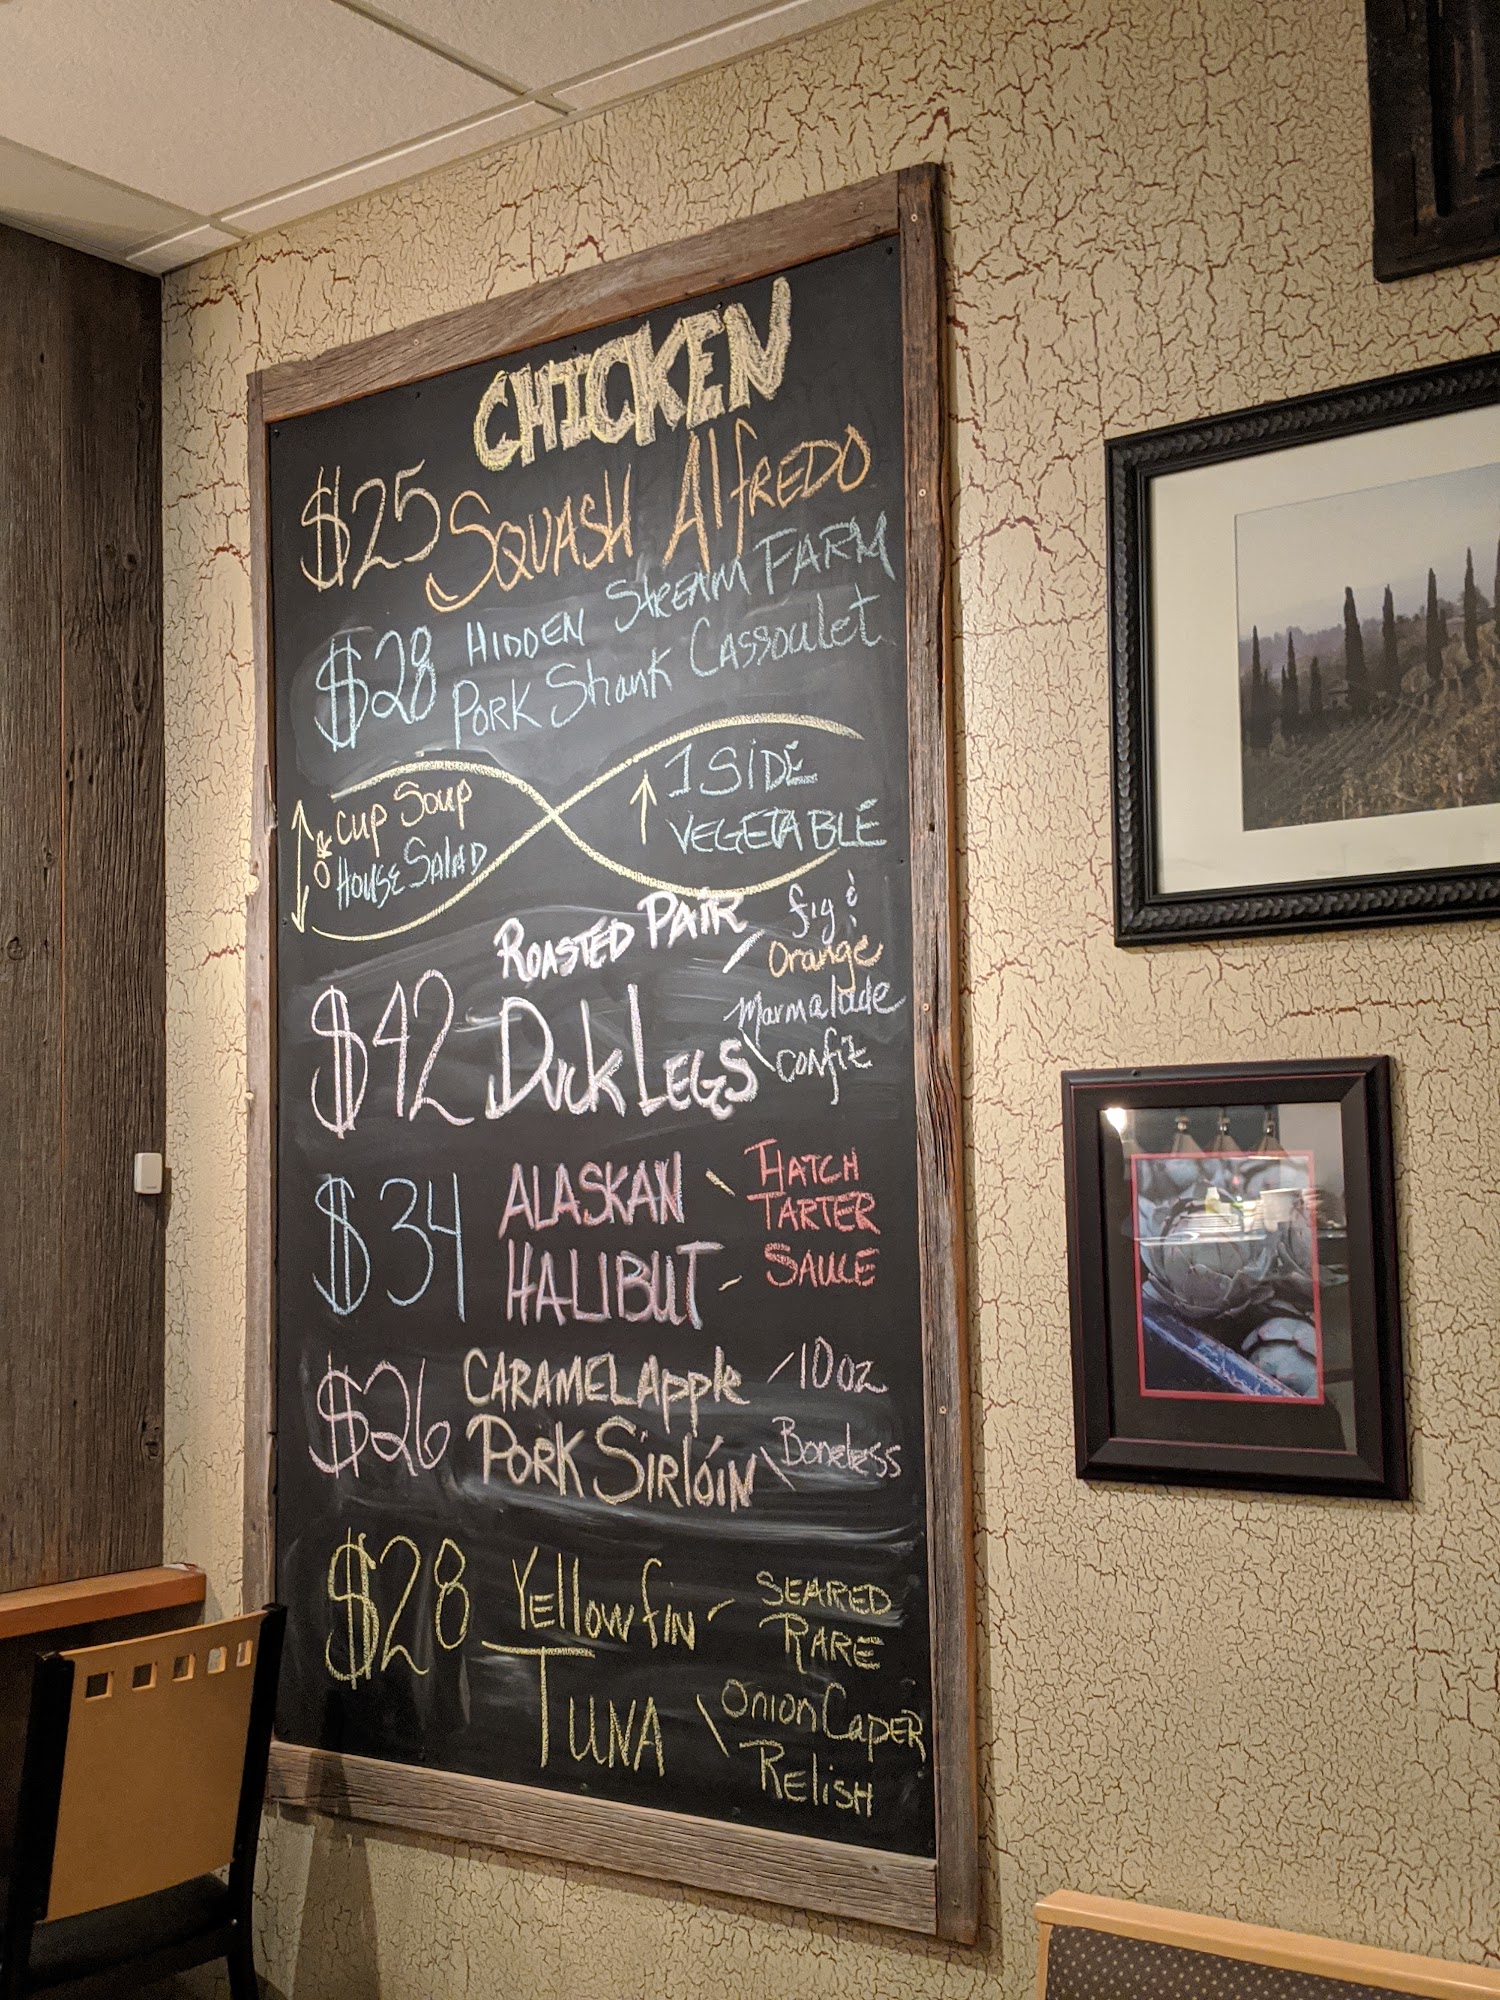 CHICKEN
$25 SQUASH AlfREDO
$28 HIDDEN StREAM FARM
PORK Shank Cassoulet
OR
CUP Soup
HOUSE SALAD
1 SIDE
VEGETABLE
ROASTED PAIR
$42 Duck LEGS
fig &
Orange
Marmalade
confit
$34 ALASKAN
HALIBUT
HATCH
TARTER
SAUCE
$26 CARAMEL Apple
PORK SirlOiN
10 oz
Boneless
$28 YEllowfiN
TUNA
SEARED
RARE
Onion CapER
RElisH